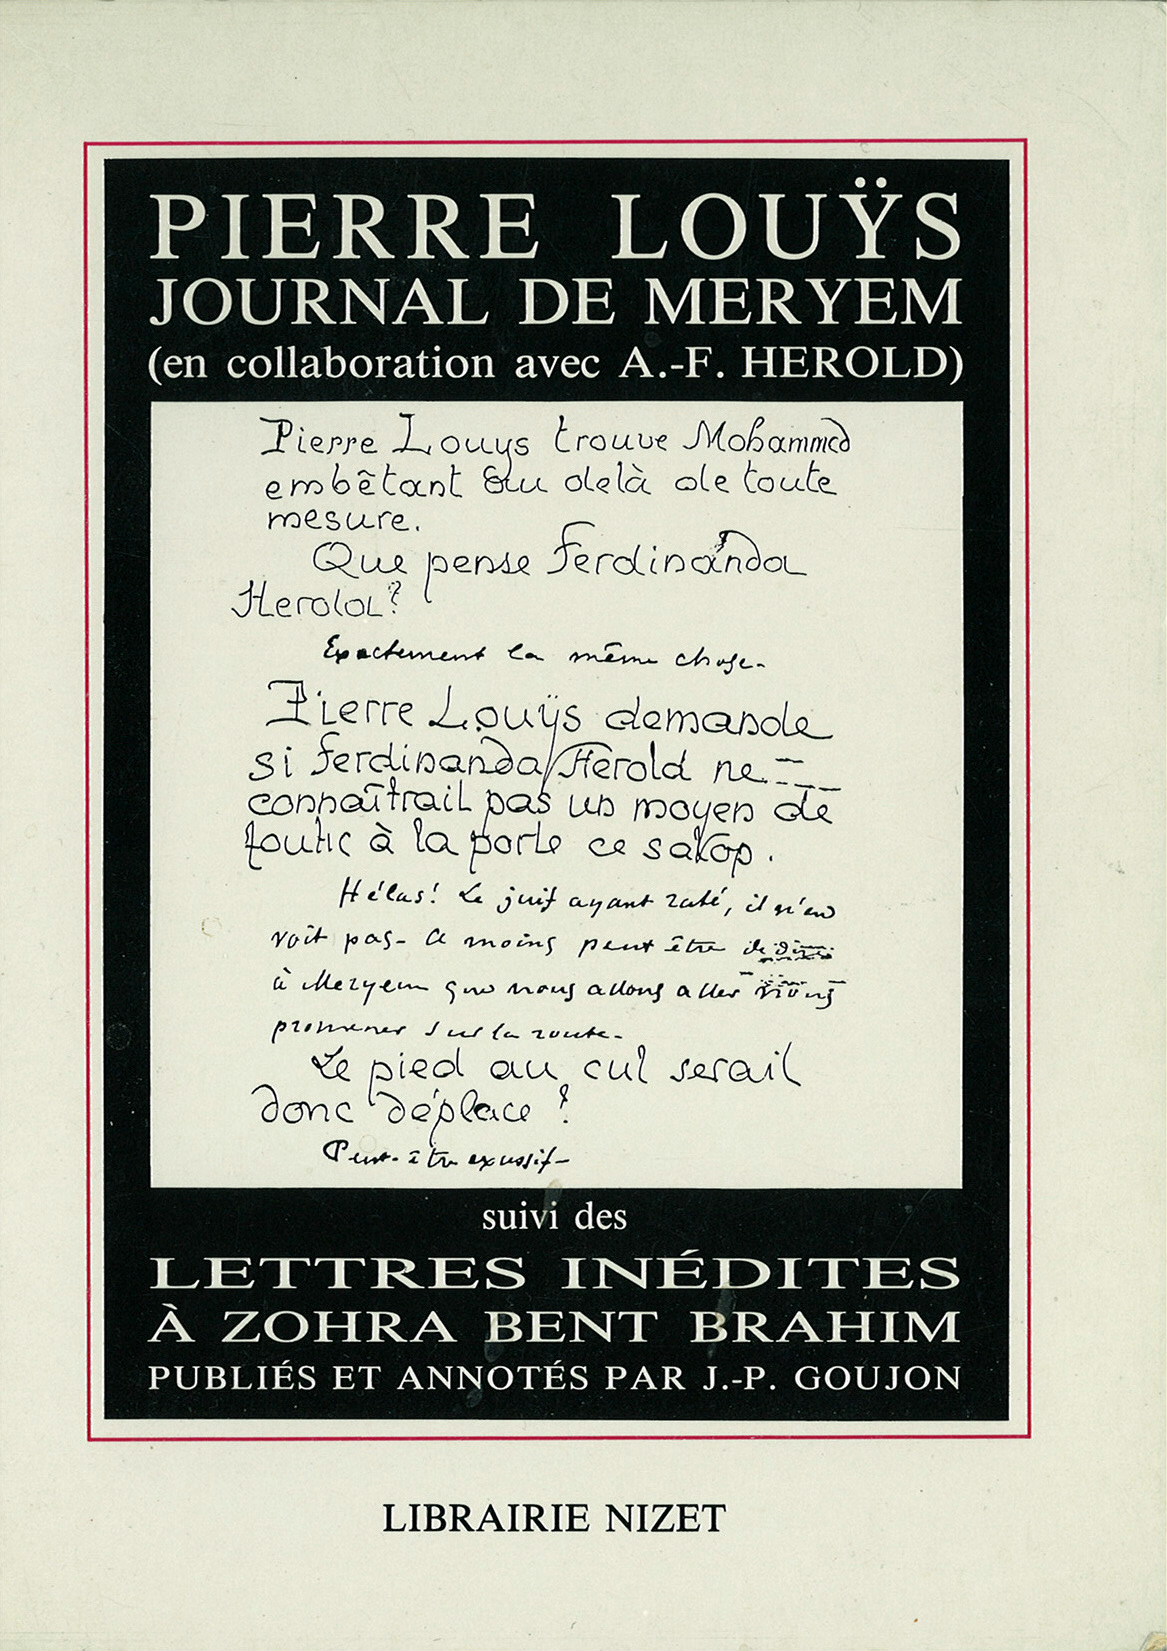 PIERRE LOUŸS
JOURNAL DE MERYEM
(en collaboration avec A.-F. HEROLD)
Pierre Louys trouve Mohammed
embêtant au delà de toute
mesure.
Que pense Ferdinanda
Herold?
Exactement la même chose.
Pierre Louÿs demande
si Ferdinanda Herold ne
connaîtrait pas un moyen de
foutre à la porte ce salop.
Hélas! Le juif ayant raté, il n'en
voit pas- A moins peut être de dire
à Meryem que nous allons aller
promener sur la route.
Le pied au cul serait
donc déplacé?
Peut-être excessif-
suivi des
LETTRES INÉDITES
À ZOHRA BENT BRAHIM
PUBLIÉS ET ANNOTÉS PAR J.-P. GOUJON
LIBRAIRIE NIZET